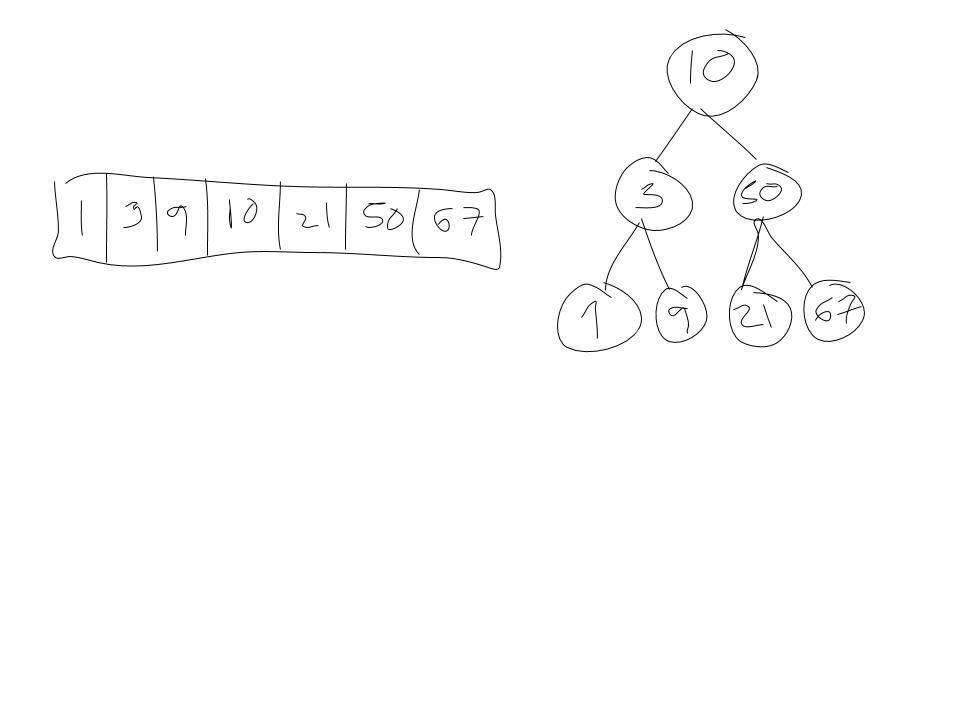 10
1 3 9 10 21 50 67
3 50
1 9 21 67